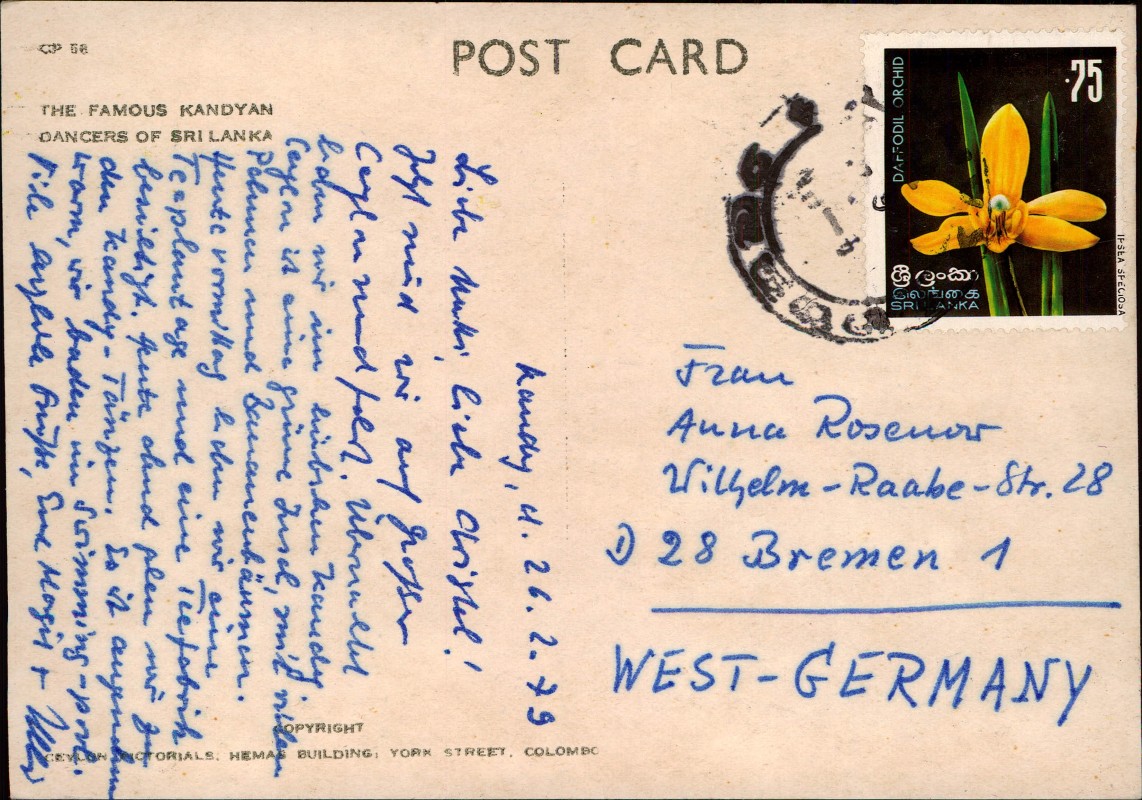 CP 58
POST CARD
THE FAMOUS KANDYAN
DANCERS OF SRI LANKA
Kandy, d. 26.2.79
Liebe Mutti, liebe Christel!
Jetzt sind wir auf großer
Ceylonrundfahrt. Übernachtet
haben wir im hübschen Kandy.
Ceylon ist eine grüne Insel, mit vielen
Palmen und Bananenbäumen.
Heute vormittag haben wir eine
Teeplantage und eine Teefabrik
besichtigt. Heute abend gehen wir zu
den Kandy-Tänzen. Es ist angenehm
warm, wir baden im Swimming-pool.
Viele herzliche Grüße, Eure Margit +
COPYRIGHT
CEYLON PICTORIALS, HEMAS BUILDING, YORK STREET, COLOMBO
DAFFODIL ORCHID
.75
IPSEA SPECIOSA
ශ්‍රී ලංකා
இலங்கை
SRI LANKA
Frau
Anna Rosenow
Wilhelm-Raabe-Str. 28
D 28 Bremen 1
WEST-GERMANY